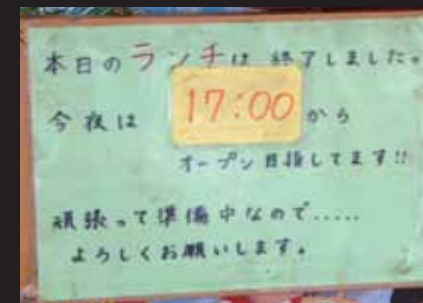 本日のランチは 終了しました。
今夜は 17:00 から
オープン目指してます!!
頑張って準備中なので.....
よろしくお願いします。